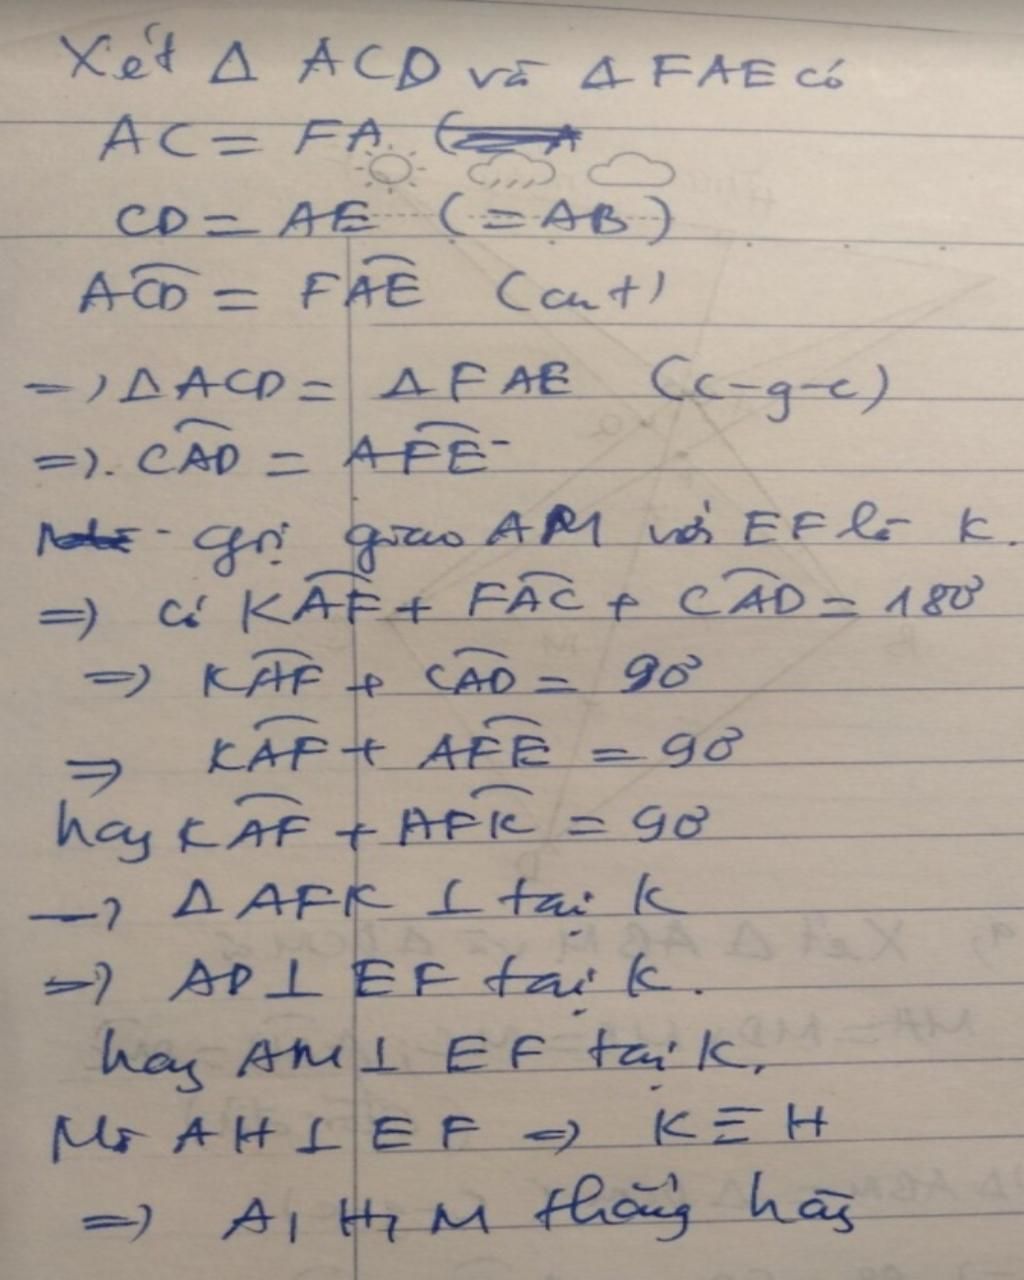 Xét Δ ACD và Δ FAE có
AC = FA (
CD = AE (= AB)
ACD = FAE (cmt)
=> Δ ACD = Δ FAE (c-g-c)
=> . CAD = AFE
- Gọi giao AM với EF là K.
=> có KAF + FAC + CAD = 180°
=> KAF + CAD = 90°
=> KAF + AFE = 90°
hay KAF + AFK = 90°
=> Δ AFK ⊥ tại K
=> AD ⊥ EF tại K.
hay AM ⊥ EF tại K.
Mà AH ⊥ EF => K ≡ H
=> A, H, M thẳng hàng